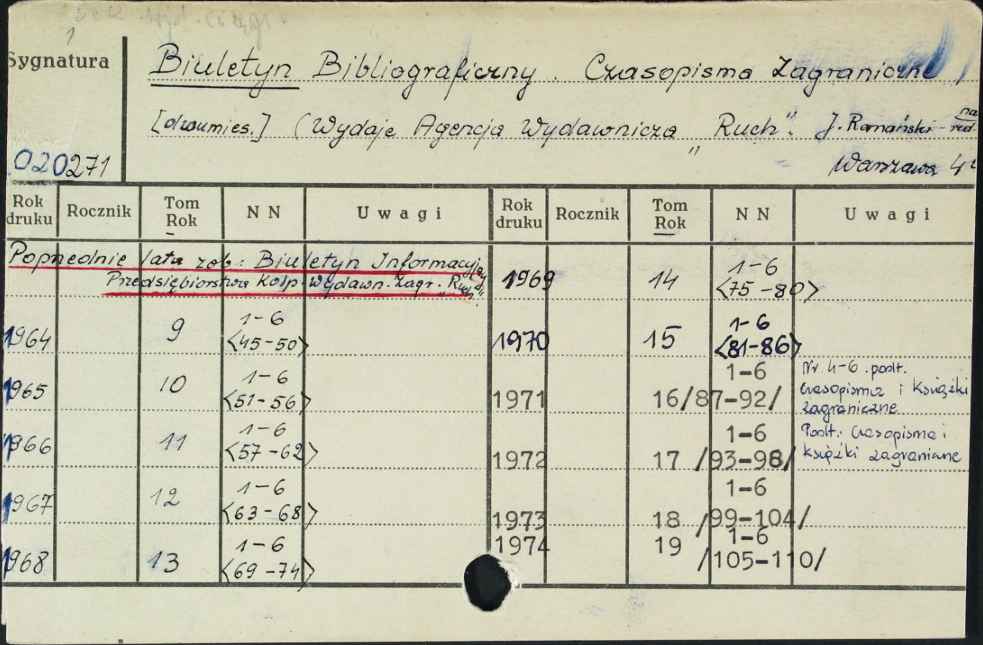 Sygnatura
Biuletyn Bibliograficzny. Czasopisma Zagraniczne
[dwumies.] (Wydaje Agencja Wydawnicza "Ruch". J. Romański - na. red.
020271
Warszawa 4°
Rok druku Rocznik Tom Rok NN Uwagi Rok druku Rocznik Tom Rok NN Uwagi
Poprzednie lata zob: Biuletyn Informacyjny
Przedsiębiorstwa Kolp. Wydawn. Zagr. "Ruch".
1964 9 1-6 <45-50>
1965 10 1-6 <51-56>
1966 11 1-6 <57-62>
1967 12 1-6 <63-68>
1968 13 1-6 <69-74>
1969 14 1-6 <75-80>
1970 15 1-6 <81-86>
1971 16 1-6 /87-92/ Nr 4-6 podt.
czasopisma i książki
zagraniczne
1972 17 1-6 /93-98/ Podt.: Czasopisma i
książki zagraniczne
1973 18 1-6 /99-104/
1974 19 1-6 /105-110/